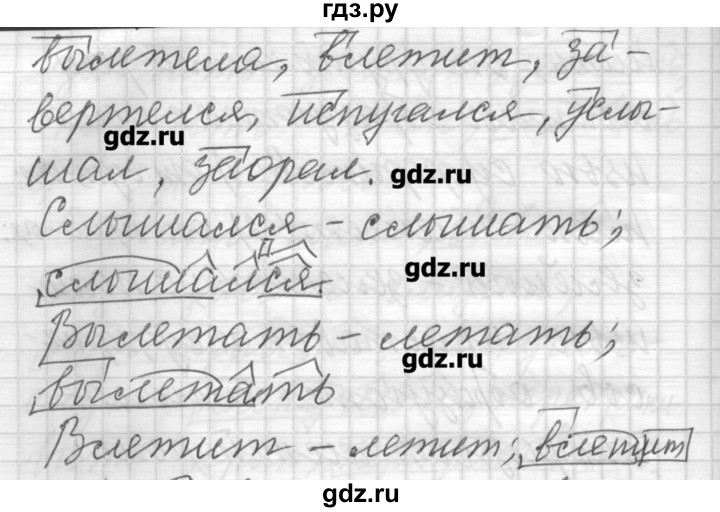 гдз.ру
вылетела, влетит, за-
вертелся, испугался, услы-
gdz.ru
шал, заорал.
gdz.ru
Слышался – слышать;
слышался
gdz.ru
Вылетать – летать;
gdz.ru
вылетать
Влетит – летит; влетит
gdz.ru